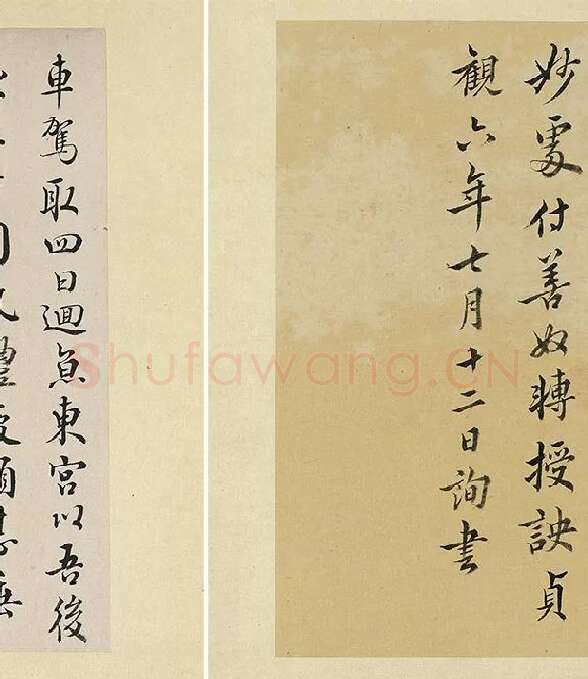 妙處付善奴轉授訣貞
觀六年七月十二日詢書
車駕取四日迴東宮以吾後
Shufawang.CN